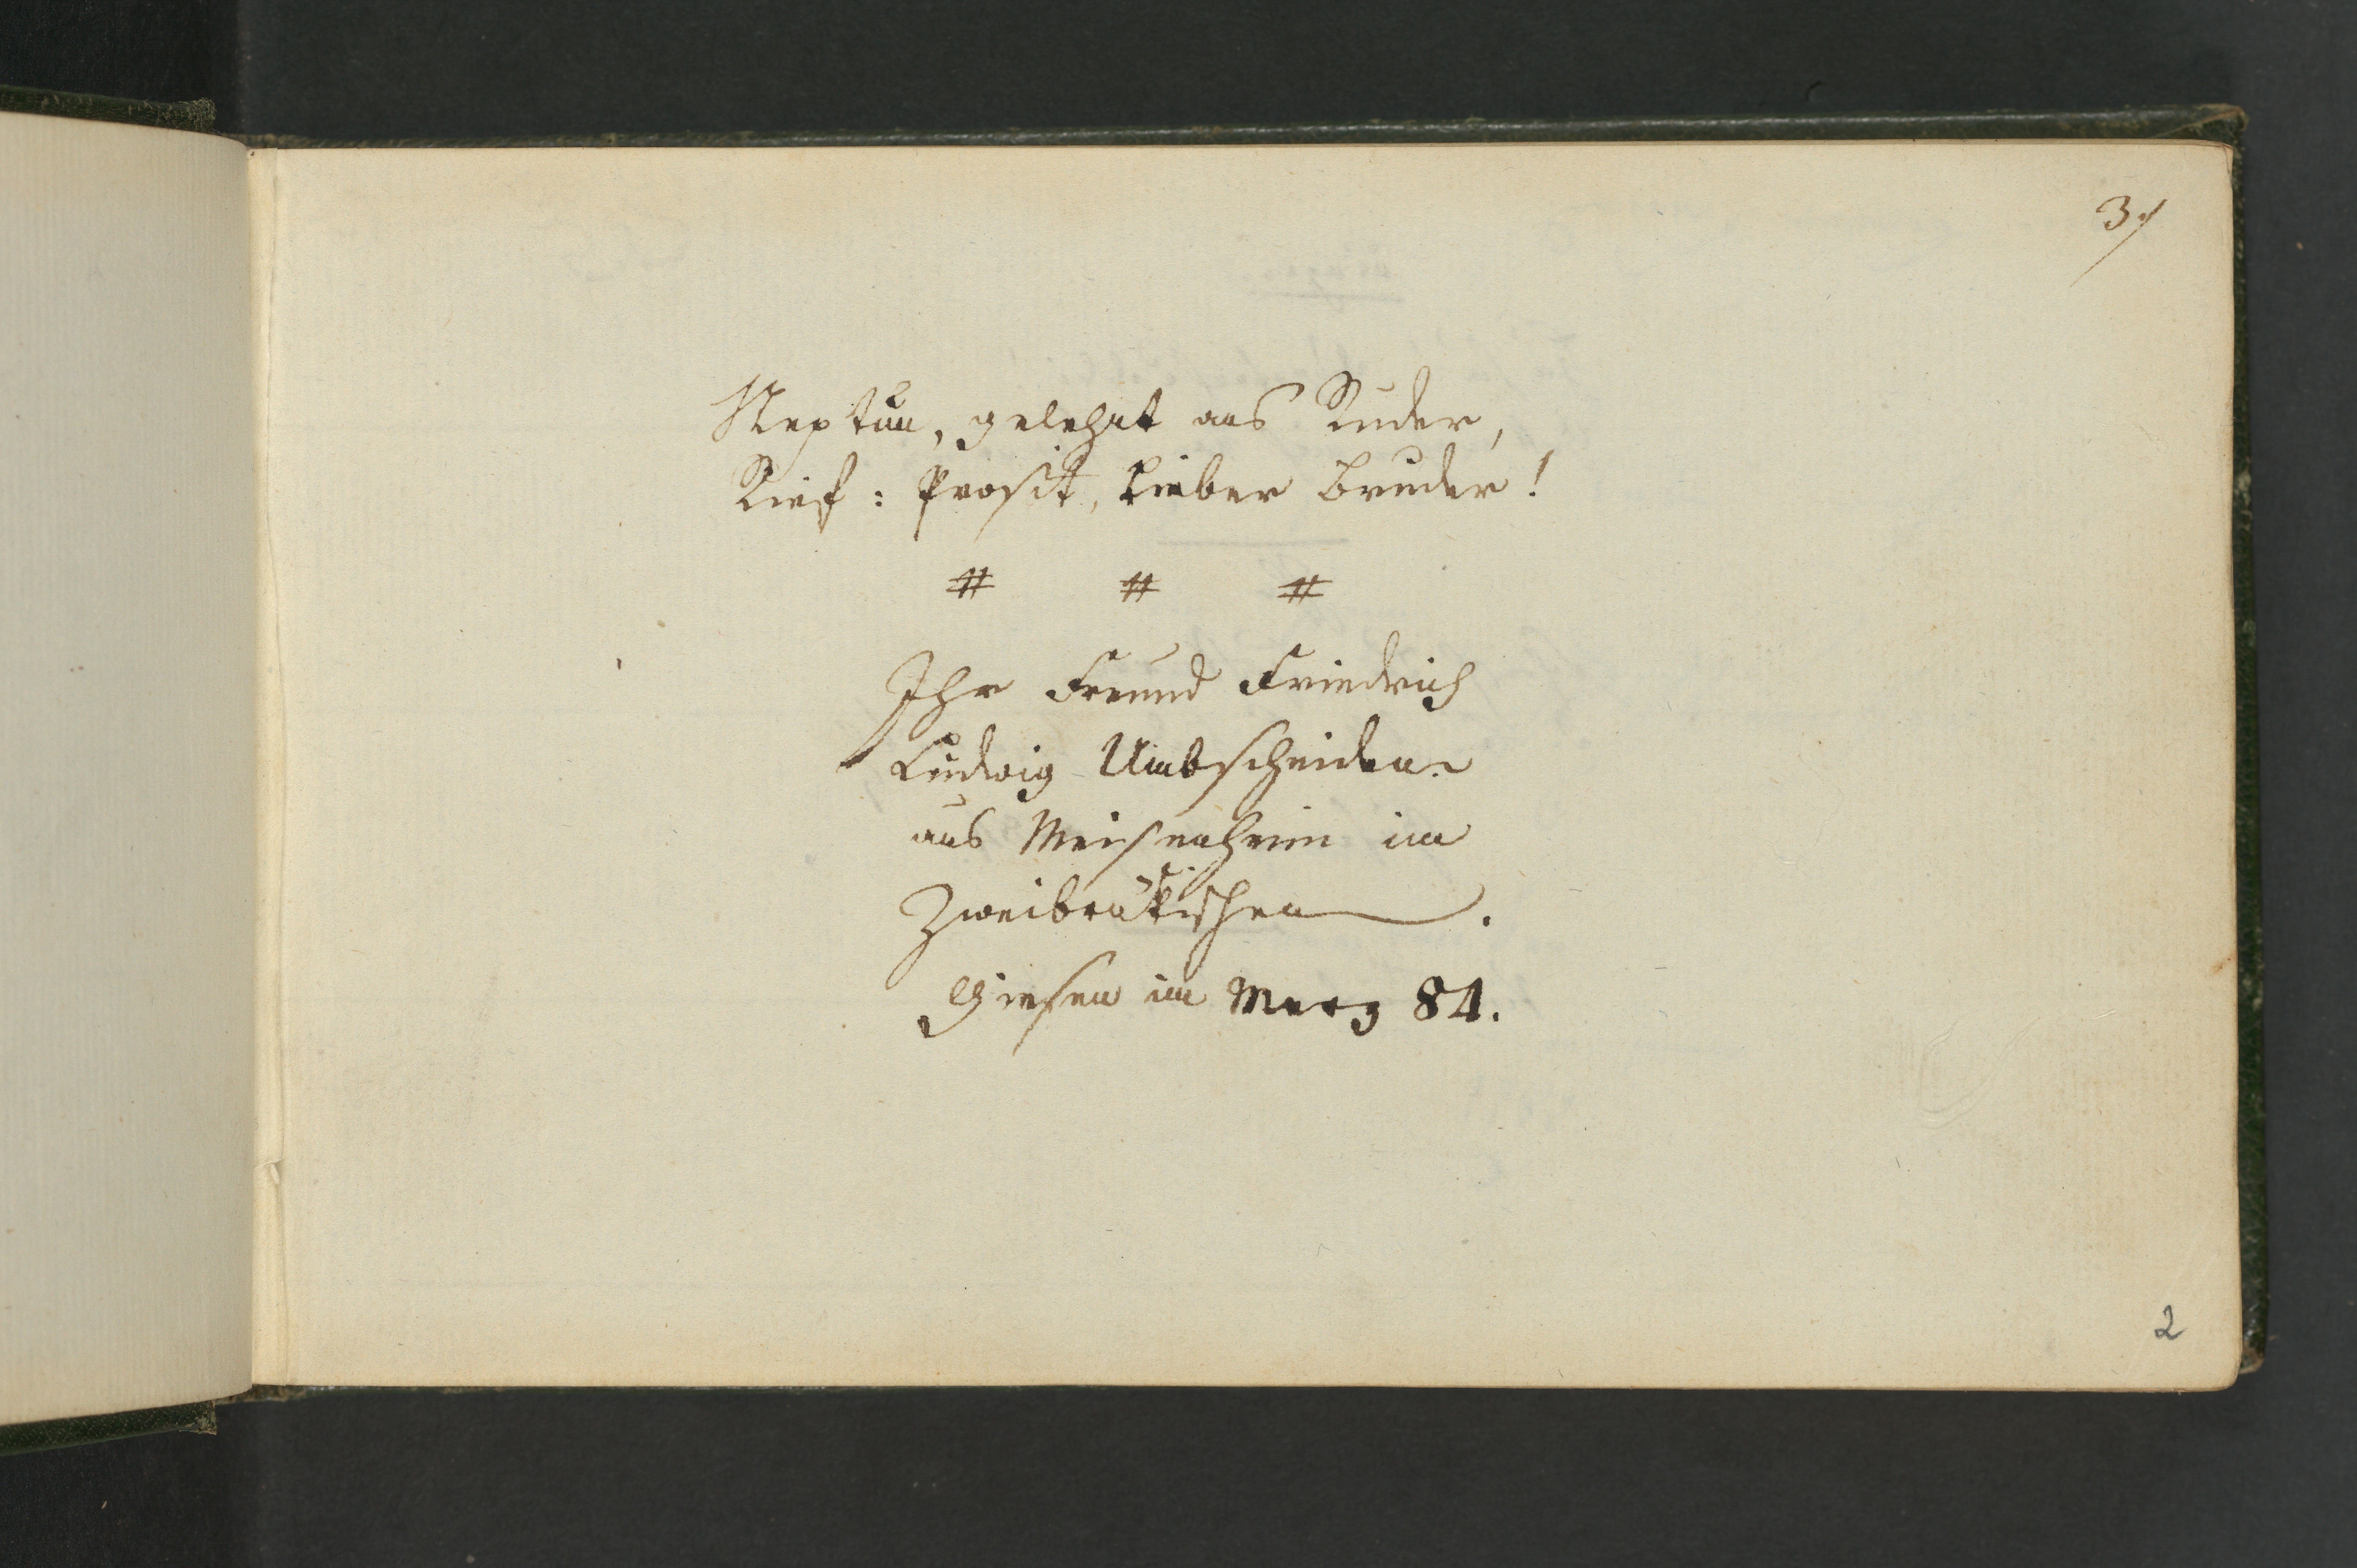 3.
Neptun, gelehnt ans Ruder,
Rief: Prosit, lieber Bruder!
# # #
Ihr Freund Friedrich
Ludwig Umbscheiden
aus Meisenheim im
Zweibrükischen.
Giesen im Merz 84.
2